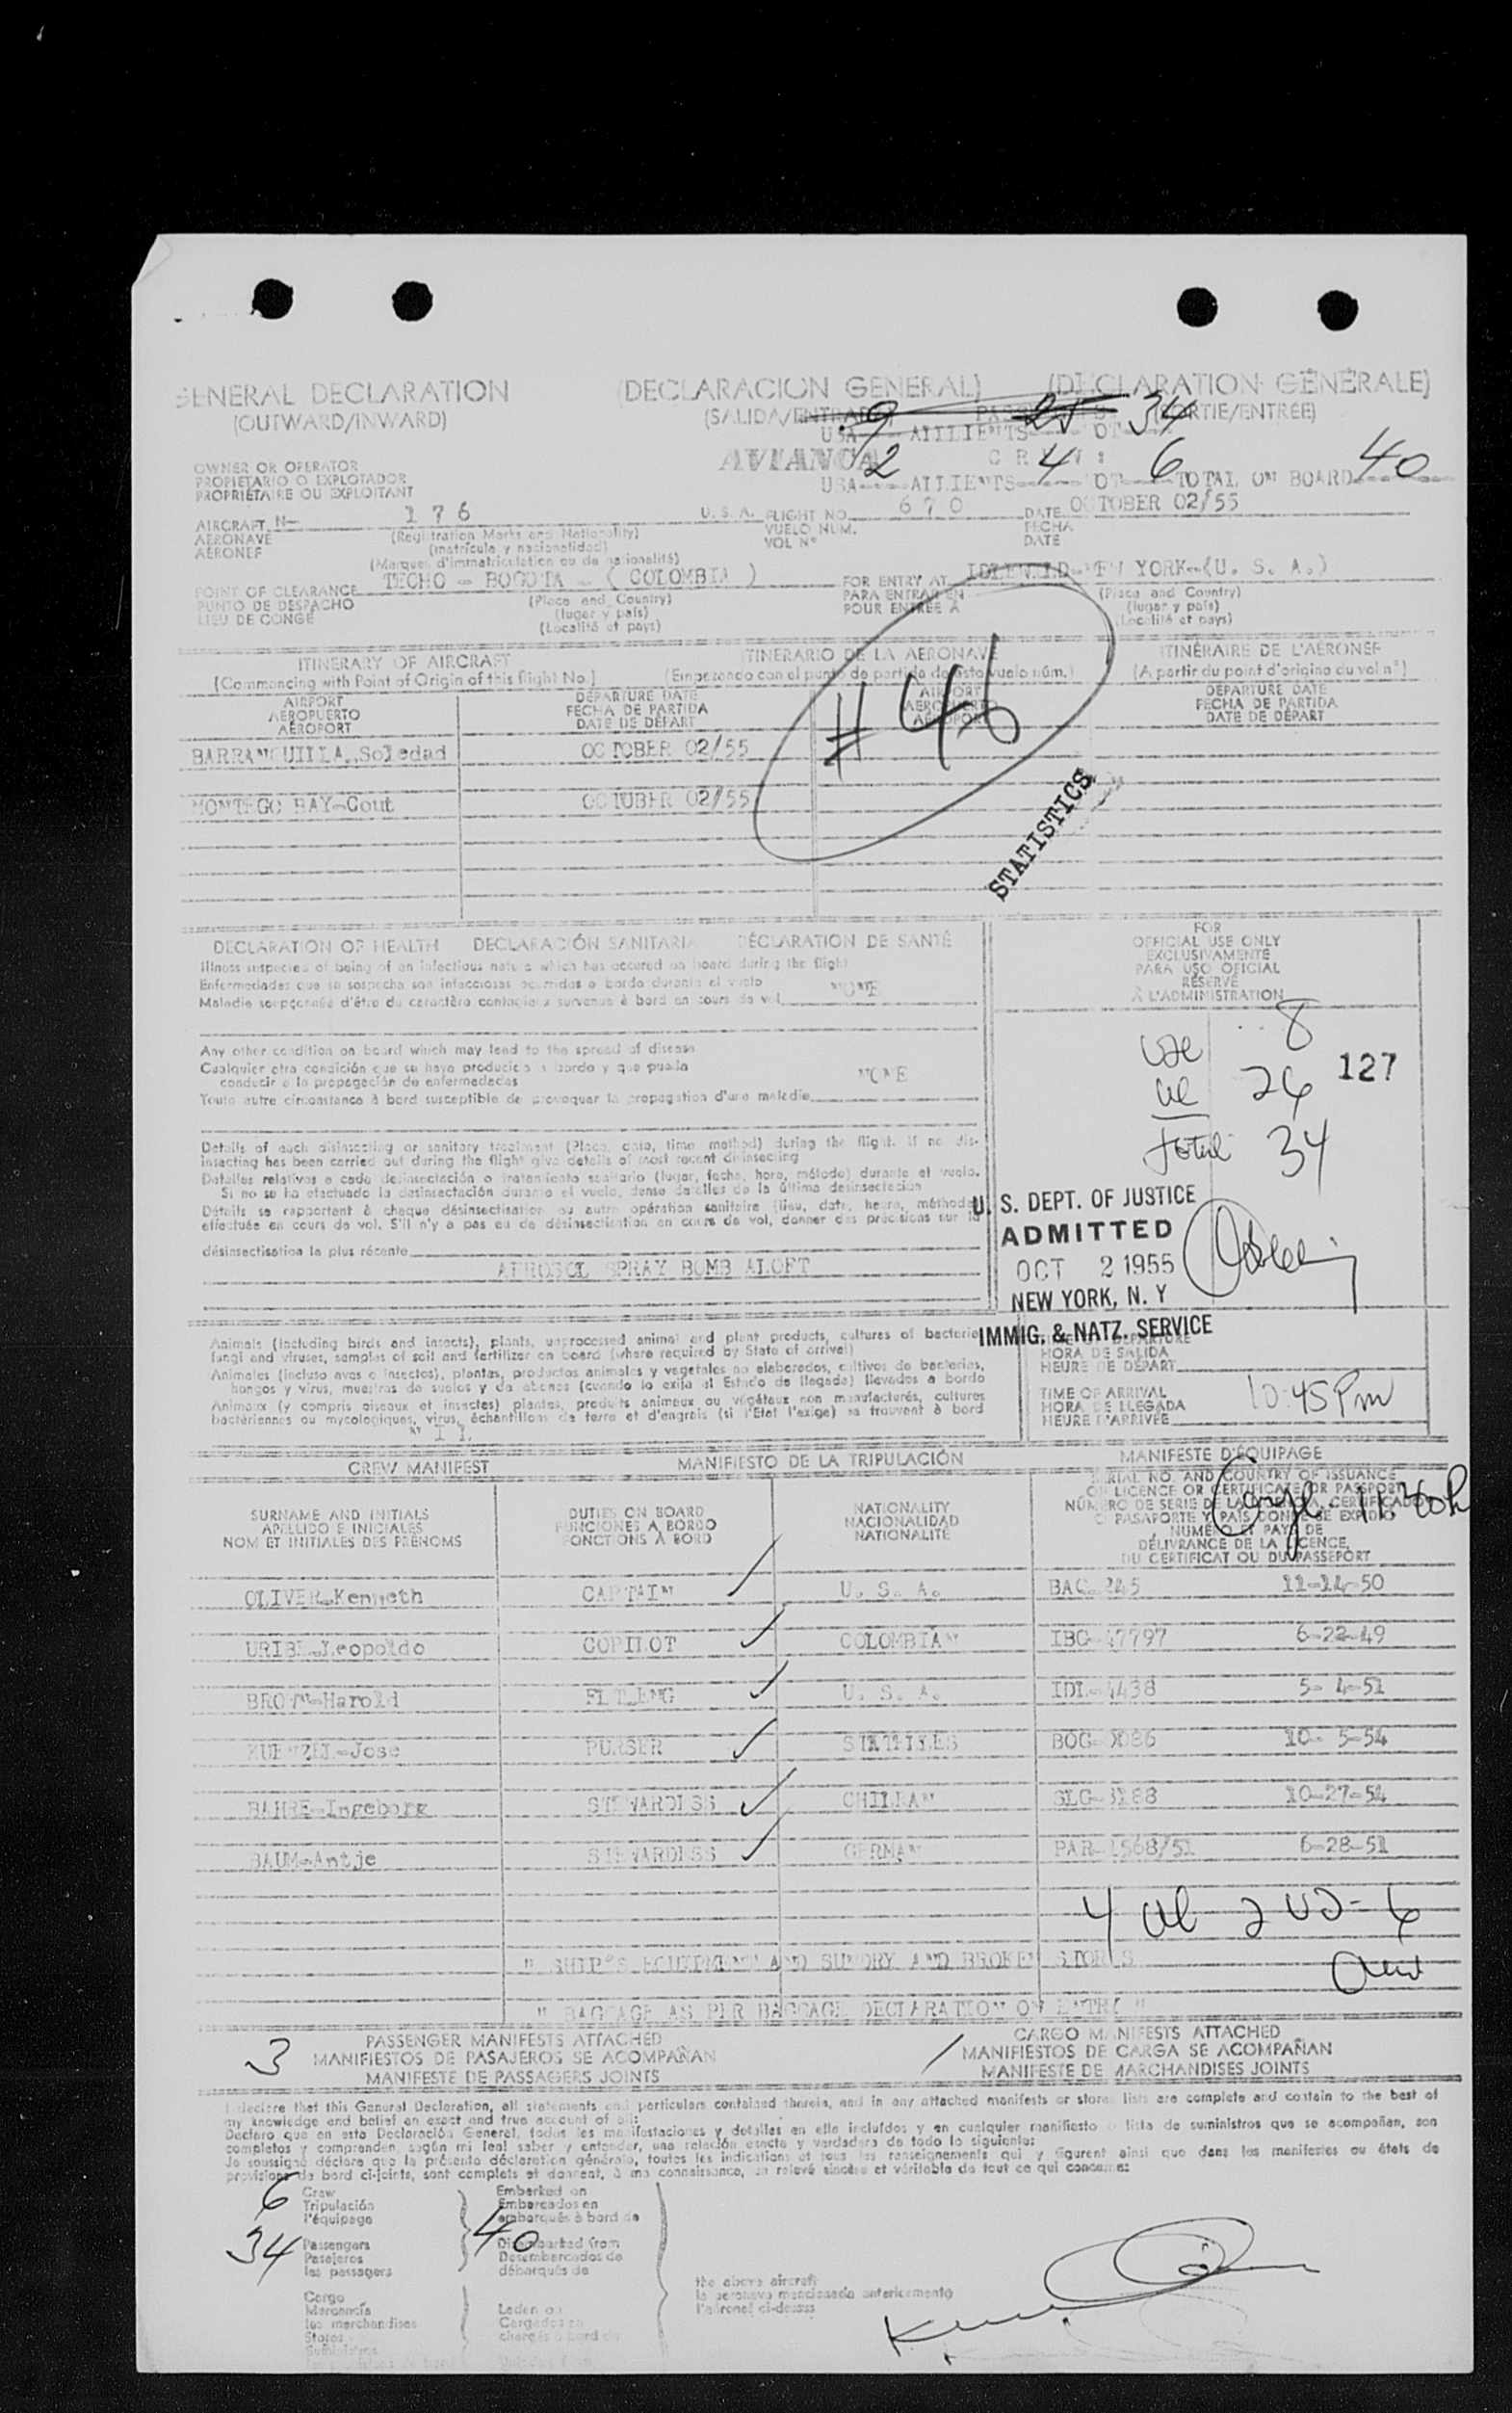 GENERAL DECLARATION (DECLARACION GENERAL) (DECLARATION GÉNÉRALE)
(OUTWARD/INWARD) (SALIDA/ENTRADA) (SORTIE/ENTRÉE)
USA 9 ALLIENTS 25 OT 34
OWNER OR OPERATOR
PROPIETARIO O EXPLOTADOR
PROPRIÉTAIRE OU EXPLOITANT
AVIANCA
CREW:
USA 2 ALLIENTS 4 OT 6 TOTAL ON BOARD 40
AIRCRAFT N- 176 U. S. A. FLIGHT NO. 670 DATE OCTOBER 02/55
AERONAVE (Registration Marks and Nationality) VUELO NUM. FECHA
AÉRONEF (matrícula y nacionalidad) VOL Nº DATE
(Marques d'immatriculation ou de nationalité)
POINT OF CLEARANCE TECHO - BOGOTA - ( COLOMBIA ) FOR ENTRY AT IDLEWILD-NEW YORK-(U. S. A.)
PUNTO DE DESPACHO (Place and Country) PARA ENTRAR EN (Place and Country)
LIEU DE CONGÉ (lugar y país) POUR ENTRÉE A (lugar y país)
(Localité et pays) (Localité et pays)
#46
ITINERARY OF AIRCRAFT ITINERARIO DE LA AERONAVE ITINÉRAIRE DE L'AÉRONEF
(Commencing with Point of Origin of this flight No.) (Empezando con el punto de partida de este vuelo núm.) (A partir du point d'origine du vol nº)
AIRPORT DEPARTURE DATE AIRPORT DEPARTURE DATE
AEROPUERTO FECHA DE PARTIDA AEROPUERTO FECHA DE PARTIDA
AÉROPORT DATE DE DÉPART AÉROPORT DATE DE DÉPART
BARRANQUILLA,Soledad OCTOBER 02/55
MONTEGO BAY-Cout OCTOBER 02/55
STATISTICS
DECLARATION OF HEALTH DECLARACIÓN SANITARIA DÉCLARATION DE SANTÉ
Illness suspected of being of an infectious nature which has occured on board during the flight
Enfermedades que se sospecha son infecciosas ocurridas a bordo durante el vuelo NONE
Maladie soupçonnée d'être du caractère contagieux survenue à bord en cours de vol
Any other condition on board which may lead to the spread of disease
Cualquier otra condición que se haya producido a bordo y que pueda
conducir a la propagación de enfermedades NONE
Toute autre circonstance à bord susceptible de provoquer la propagation d'une maladie
Details of each disinsecting or sanitary treatment (Place, date, time method) during the flight. If no dis-
insecting has been carried out during the flight give details of most recent disinsecting
Detalles relativos a cada desinsectación o tratamiento sanitario (lugar, fecha, hora, método) durante el vuelo.
Si no se ha efectuado la desinsectación durante el vuelo, dense detalles de la última desinsectación
Détails se rapportant à chaque désinsectisation ou autre opération sanitaire (lieu, date, heure, méthode)
effectuée en cours de vol. S'il n'y a pas eu de désinsectisation en cours de vol, donner des précisions sur la
désinsectisation la plus récente
AEROSOL SPRAY BOMB ALOFT
FOR
OFFICIAL USE ONLY
EXCLUSIVAMENTE
PARA USO OFICIAL
RÉSERVÉ
À L'ADMINISTRATION
8
26 127
total 34
U. S. DEPT. OF JUSTICE
ADMITTED
OCT 2 1955
NEW YORK, N. Y
IMMIG. & NATZ. SERVICE
Animals (including birds and insects), plants, unprocessed animal and plant products, cultures of bacteria,
fungi and viruses, samples of soil and fertilizer on board (where required by State of arrival)
Animales (incluso aves o insectos), plantas, productos animales y vegetales no elaborados, cultivos de bacterias,
hongos y virus, muestras de suelos y de abonos (cuando lo exija el Estado de llegada) llevados a bordo
Animaux (y compris oiseaux et insectes) plantes, produits animaux ou végétaux non manufacturés, cultures
bactériennes ou mycologiques, virus, échantillons de terre et d'engrais (si l'Etat l'exige) se trouvant à bord
HORA DE SALIDA
HEURE DE DÉPART
TIME OF ARRIVAL
HORA DE LLEGADA 10:45 PM
HEURE D'ARRIVÉE
CREW MANIFEST MANIFIESTO DE LA TRIPULACIÓN MANIFESTE D'ÉQUIPAGE
SURNAME AND INITIALS DUTIES ON BOARD NATIONALITY
APELLIDO E INICIALES FUNCIONES A BORDO NACIONALIDAD
NOM ET INITIALES DES PRÉNOMS FONCTIONS À BORD NATIONALITÉ
SERIAL NO. AND COUNTRY OF ISSUANCE
OF LICENCE OR CERTIFICATE OR PASSPORT
NÚMERO DE SERIE DE LA LICENCIA, CERTIFICADO
O PASAPORTE Y PAÍS DONDE SE EXPIDIO
NUMÉRO ET PAYS DE
DÉLIVRANCE DE LA LICENCE,
DU CERTIFICAT OU DU PASSEPORT
OLIVER-Kenneth CAPTAIN U. S. A. BAQ 245 11-14-50
URIBE-Leopoldo COPILOT COLOMBIAN IBG-17797 6-22-49
BROWN-Harold FLT.ENG U. S. A. IDL-4438 5- 4-51
KUENZEL-Jose PURSER BOG- 10- 5-54
BAHRE-Ingeborg STEWARDESS CHILEAN SLG-3188 10-27-54
BAUM-Antje STEWARDESS GERMAN PAR-1568/51 6-28-51
" SHIP'S EQUIPMENT AND SUNDRY AND BROKEN STORES
" BAGGAGE AS PER BAGGAGE DECLARATION ON ENTRY "
3 PASSENGER MANIFESTS ATTACHED CARGO MANIFESTS ATTACHED
MANIFIESTOS DE PASAJEROS SE ACOMPAÑAN MANIFIESTOS DE CARGA SE ACOMPAÑAN
MANIFESTE DE PASSAGERS JOINTS MANIFESTE DE MARCHANDISES JOINTS
I declare that this General Declaration, all statements and particulars contained therein, and in any attached manifests or stores lists are complete and contain to the best of
my knowledge and belief an exact and true account of all:
Declaro que en esta Declaración General, todas las manifestaciones y detalles en ella incluídos y en cualquier manifiesto o lista de suministros que se acompañan, son
completos y comprenden, según mi leal saber y entender, una relación exacta y verdadera de todo lo siguiente:
Je soussigné déclare que la présente déclaration générale, toutes les indications et tous les renseignements qui y figurent ainsi que dans les manifestes ou états de
provisions de bord ci-joints, sont complets et donnent, à ma connaissance, un relevé sincère et véritable de tout ce qui concerne:
6 Crew Embarked on
Tripulación Embarcados en
l'équipage embarqués à bord de
34 Passengers 40 Disembarked from
Pasajeros Desembarcados de
les passagers débarqués de
the above aircraft
la aeronave mencionada anteriormente
l'aéronef ci-dessus
Cargo
Mercancía Laden on
les marchandises Cargados en
Stores chargés à bord de
Suministros